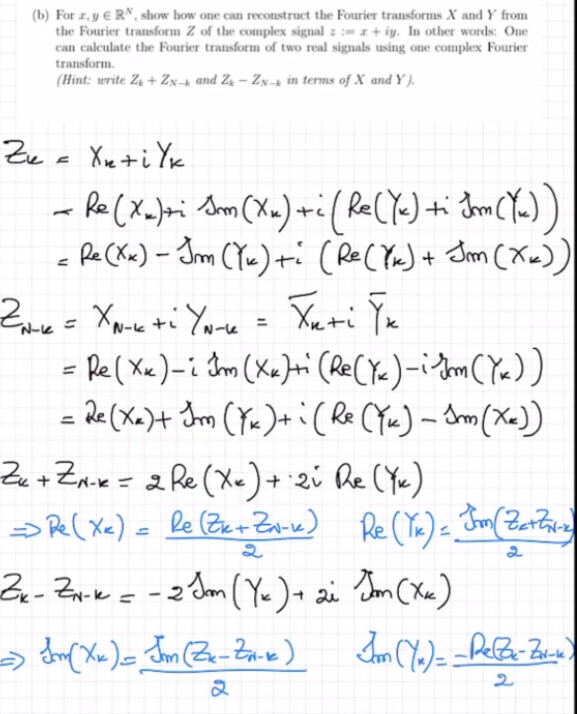 (b) For x, y ∈ ℝᴺ, show how one can reconstruct the Fourier transforms X and Y from
the Fourier transform Z of the complex signal z := x + iy. In other words: One
can calculate the Fourier transform of two real signals using one complex Fourier
transform.
(Hint: write Z_k + Z_{N−k} and Z_k − Z_{N−k} in terms of X and Y).
Z_k = X_k + i Y_k
= Re(X_k)+i Im(X_k)+i(Re(Y_k)+i Im(Y_k))
= Re(X_k) − Im(Y_k)+i (Re(Y_k) + Im(X_k))
Z_{N-k} = X_{N-k} + i Y_{N-k} = X̄_k + i Ȳ_k
= Re(X_k)−i Im(X_k)+i(Re(Y_k)−i Im(Y_k))
= Re(X_k)+ Im(Y_k)+i(Re(Y_k) − Im(X_k))
Z_k + Z_{N-k} = 2 Re(X_k) + 2i Re(Y_k)
⇒ Re(X_k) = Re(Z_k+Z_{N-k})/2 Re(Y_k) = Im(Z_k+Z_{N-k})/2
Z_k − Z_{N-k} = −2 Im(Y_k) + 2i Im(X_k)
⇒ Im(X_k) = Im(Z_k−Z_{N-k})/2 Im(Y_k) = −Re(Z_k−Z_{N-k})/2